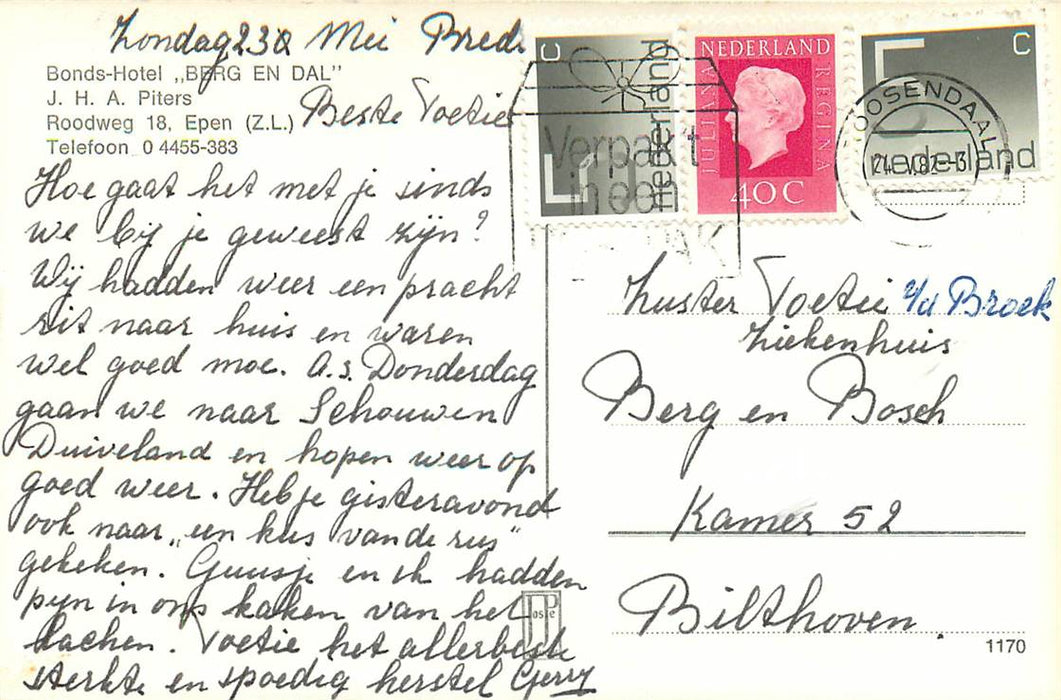 Zondag 23 Mei Breda
Bonds-Hotel „BERG EN DAL"
J. H. A. Piters
Roodweg 18, Epen (Z.L.)
Telefoon 0 4455-383
Beste Voetie
Hoe gaat het met je sinds
we bij je geweest zijn?
Wij hadden weer een pracht
rit naar huis en waren
wel goed moe. A.s. Donderdag
gaan we naar Schouwen
Duiveland en hopen weer op
goed weer. Heb je gisteravond
ook naar „een kus van de rus"
gekeken. Guusje en ik hadden
pyn in ons kaken van het
lachen. Voetie het allerbeste
sterkte en spoedig herstel Gerry
C
nederland
NEDERLAND
JULIANA REGINA
40C
C
nederland
Verpakt
in een
PAK
ROOSENDAAL
24.V.82-13
Zuster Voetie v/d Broek
Ziekenhuis
Berg en Bosch
Kamer 52
Bilthoven.
JosPé
1170